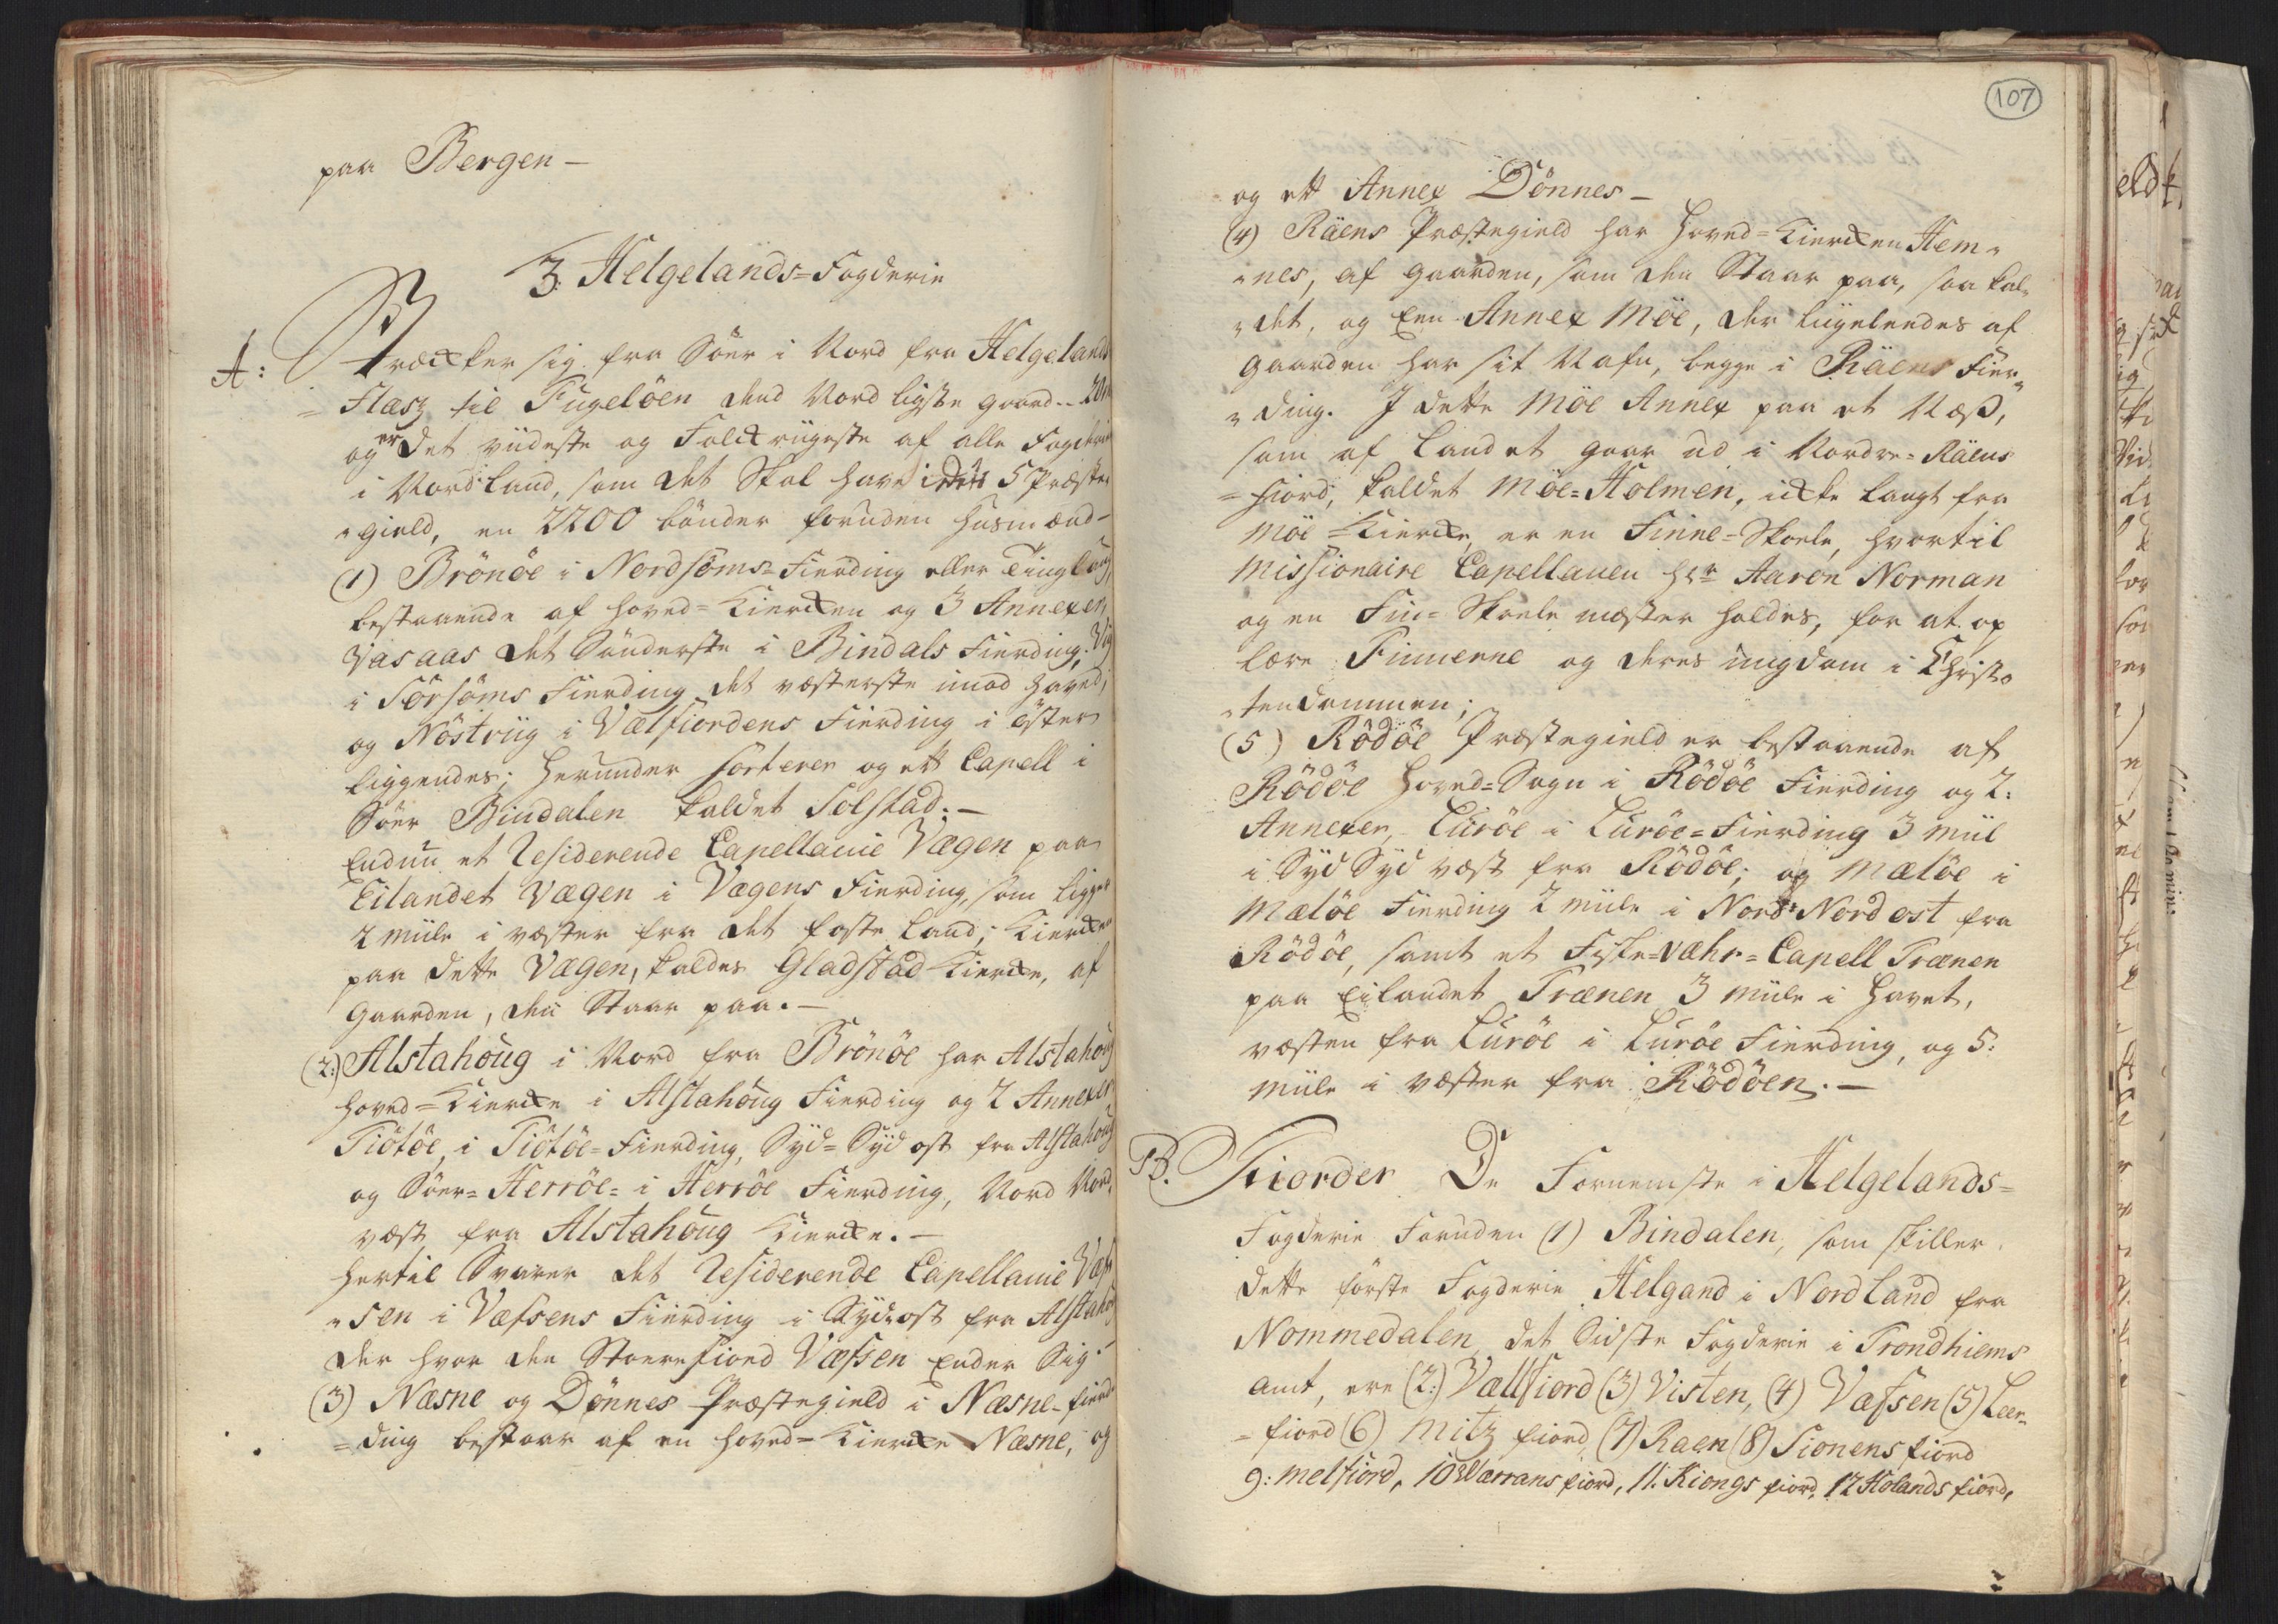 paa Bergen –
3. Helgelands=Fogderie
A: Strækker sig fra Söer i Nord fra Helgelands
=Flæsz til Fugelöen dend Nord ligste gaard --
og er det viideste og Folckriigeste af alle Fogderie
i Nordland, som det Skal have i dets 5 Præste
gield, en 2200 bönder foruden Husmænd –
(1) Brönöe i Nordsöms=Fierding eller Tinglaug,
bestaaende af Hoved=Kiercken og 3 Annexer,
Vasaas det Sönderste i Bindals Fierding,
i Sörsöms Fierding det væsterste imod Haved,
og Nöstviig i Vælfiordens Fierding i öster
liggendes; Herunder sorterer og ett Capell i
Söer Bindalen kaldet Solstad. –
Endnu et Residerende Capellanie Vægen paa
Eilandet Vægen i Vægens Fierding, som ligger
2 miile i væster fra det faste Land; Kiercken
paa dette Vægen, kaldes Gladstad Kiercke, af
Gaarden, den Staar paa. –
(2:) Alstahoug i Nord fra Brönöe har Alstahoug
Hoved=Kiercke i Alstahoug Fierding og 2 Annexer
Tiötöe, i Tiötöe=Fierding, Syd=Syd ost fra Alstahoug
og Söer=Herröe= i Herröe Fierding, Nord Nord
væst fra Alstahoug Kiercke. –
Hertil Svarer det Residerende Capellanie Væf
sen i Væfsens Fierding i Sydost fra Alstahoug
der hvor den Stoere fiord Væfsen Ender Sig.
(3) Næsne og Dönnes Præstegield i Næsne-fier
=ding bestaar af en Hoved=Kiercke Næsne, og
107
og ett Annex Dönnes –
(4) Räens Præstegield har Hoved=Kiercken Hem
nes, af gaarden, som den Staar paa, saa kal
det, og Een Annex Möe, der liigeleedes af
Gaarden har sit Nafn, begge i Räens Fier
ding. I dette Möe Annex paa et Næß,
som af Landet gaar ud i Nordre=Räens
=fiord, kaldet Möe=Holmen, icke langt fra
Möe=Kiercke, er en Finne=Skoele, hvortil
Missionaire Capellanen Hr Aaron Norman
og en Fin=Skoele mæster holdes, for at op
lære Finnerne og deres ungdom i Christ
tendommen;
(5) Rödöe Præstegield er bestaaende af
Rödöe Hoved=Sogn i Rödöe Fierding og 2:
Annexer, Luröe i Luröe=Fierding 3 miil
i Syd Syd væst fra Rödöe; og Mælöe i
Mælöe Fierding 2 miile i Nord=Nordost fra
Rödöe, samt et Fiske=Væhr=Capell Trænen
paa Eilandet Trænen 3 miile i Havet,
væsten fra Luröe i Luröe Fierding, og 5:
miile i væster fra Rödöen. –
B. Fiorder De Fornemste i Helgelands=
Fogderie Foruden (1) Bindalen, som skiller
dette förste Fogderie Helgand i Nordland fra
Nommedalen det Sidste Fogderie i Trondhiems
amt, ere (2:) Vællfiord (3) Visten, (4) Væfsen (5) Leer
=fiord (6) Mitz fiord, (7) Raen (8) Sionens fiord
9: Melfiord, 10 Værrans fiord, 11. Kiongs fiord, 12 Holands fiord,